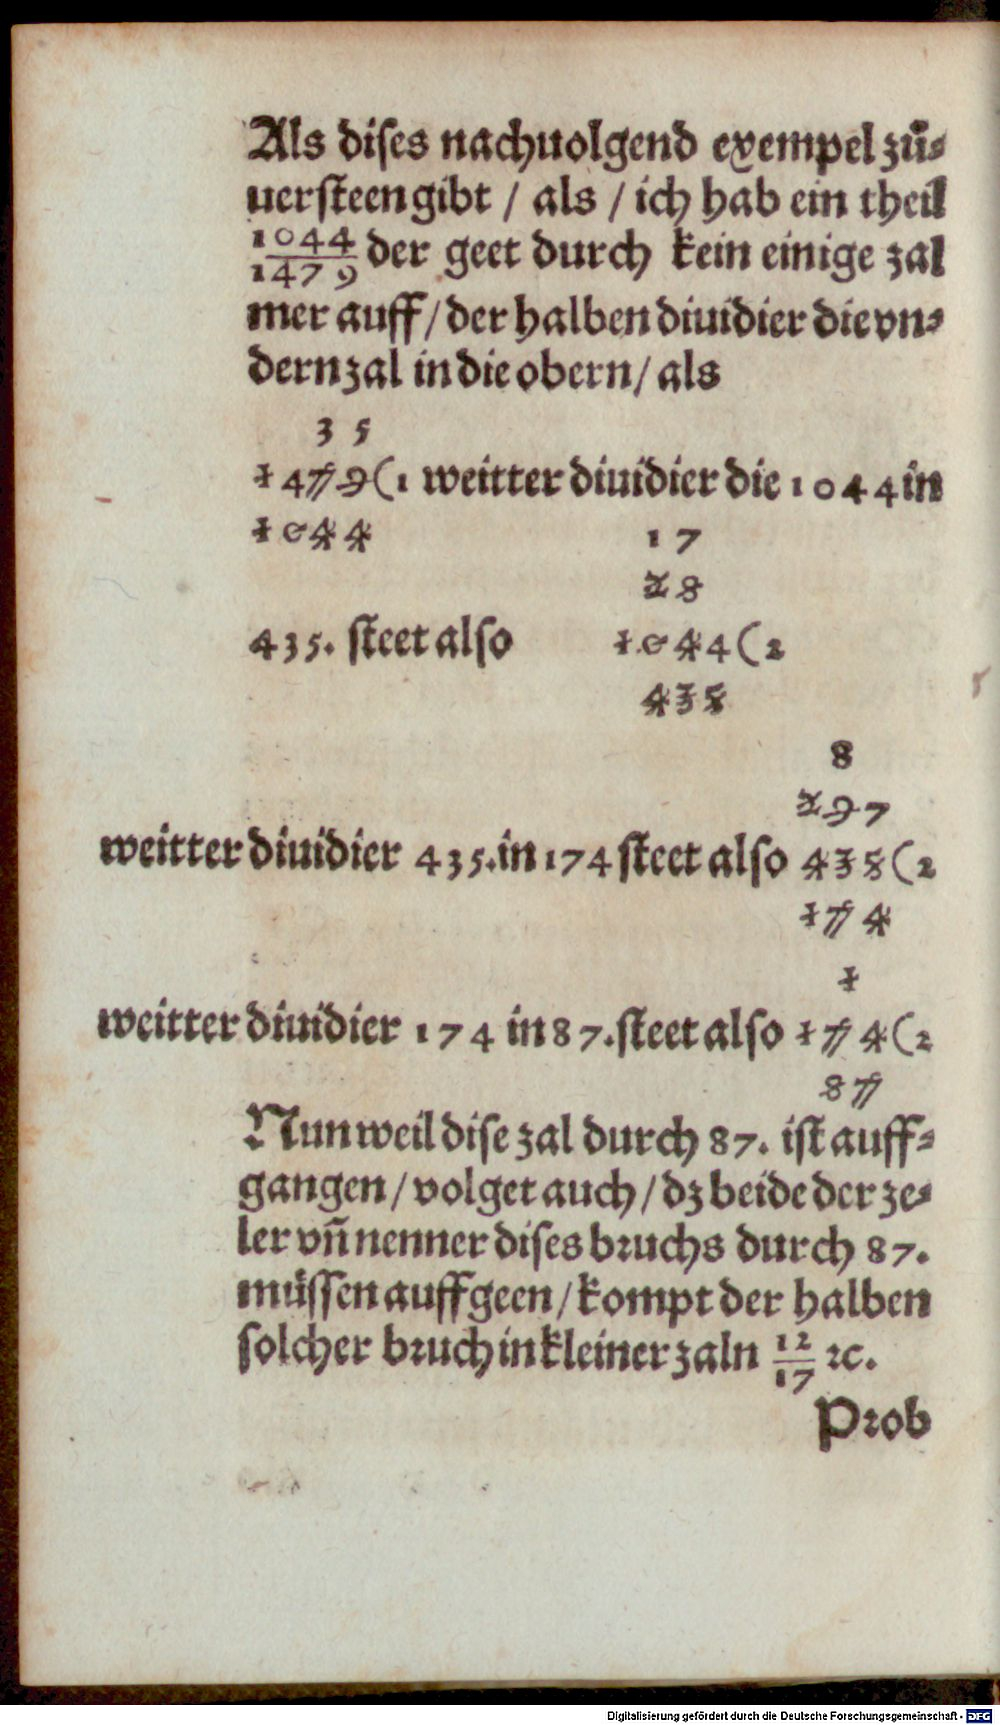 Als dises nachuolgend exempel zů⸗
uersteen gibt / als / ich hab ein theil
1044/1479 der geet durch kein einige zal
mer auff / der halben diuidier die vn⸗
dern zal in die obern / als
3 5
1479(1 weitter diuidier die 1044 in
1044
1 7
28
435. steet also 1044(2
435
8
297
weitter diuidier 435. in 174 steet also 435(2
174
1
weitter diuidier 174 in 87. steet also 174(2
87
Nun weil dise zal durch 87. ist auff⸗
gangen / volget auch / dz beide der ze⸗
ler vn̄ nenner dises bꝛuchs durch 87.
müssen auffgeen / kompt der halben
solcher bꝛuch in kleiner zaln 12/17 ⁊c.
Pꝛob
Digitalisierung gefördert durch die Deutsche Forschungsgemeinschaft - DFG